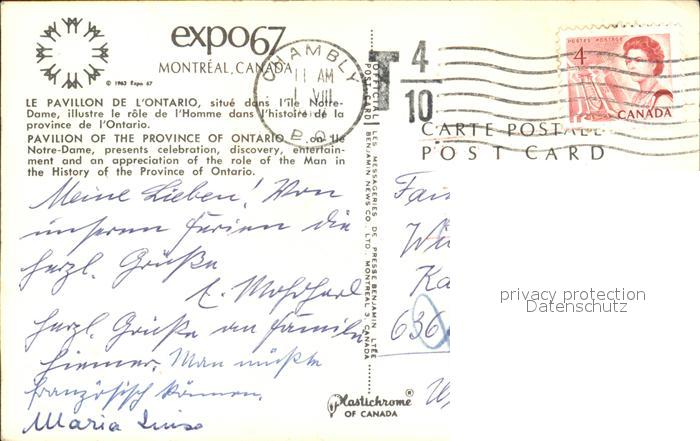 expo67
MONTRÉAL, CANADA
© 1963 Expo 67
CHAMBLY
11 AM
1 VIII
P. Q.
T 4/10
POSTES POSTAGE
4
CANADA
LE PAVILLON DE L'ONTARIO, situé dans l'île Notre-
Dame, illustre le rôle de l'Homme dans l'histoire de la
province de l'Ontario.
PAVILION OF THE PROVINCE OF ONTARIO, on Ile
Notre-Dame, prents celebration, discovery, entertain-
ment and an appreciation of the role of the Man in
the History of the Province of Ontario.
CARTE POSTALE
POST CARD
OFFICIAL POST-CARD
LES MESSAGERIES DE PRESSE BENJAMIN LTÉE
BENJAMIN NEWS CO., LTD., MONTREAL 3, CANADA
Meine Lieben! Von
unseren Ferien die
herzl. Grüße
herzl. Grüße an Familie
Man müßte
französisch können.
Maria
Fam
Wi
Ka
636
Plastichrome®
OF CANADA
privacy protection
Datenschutz